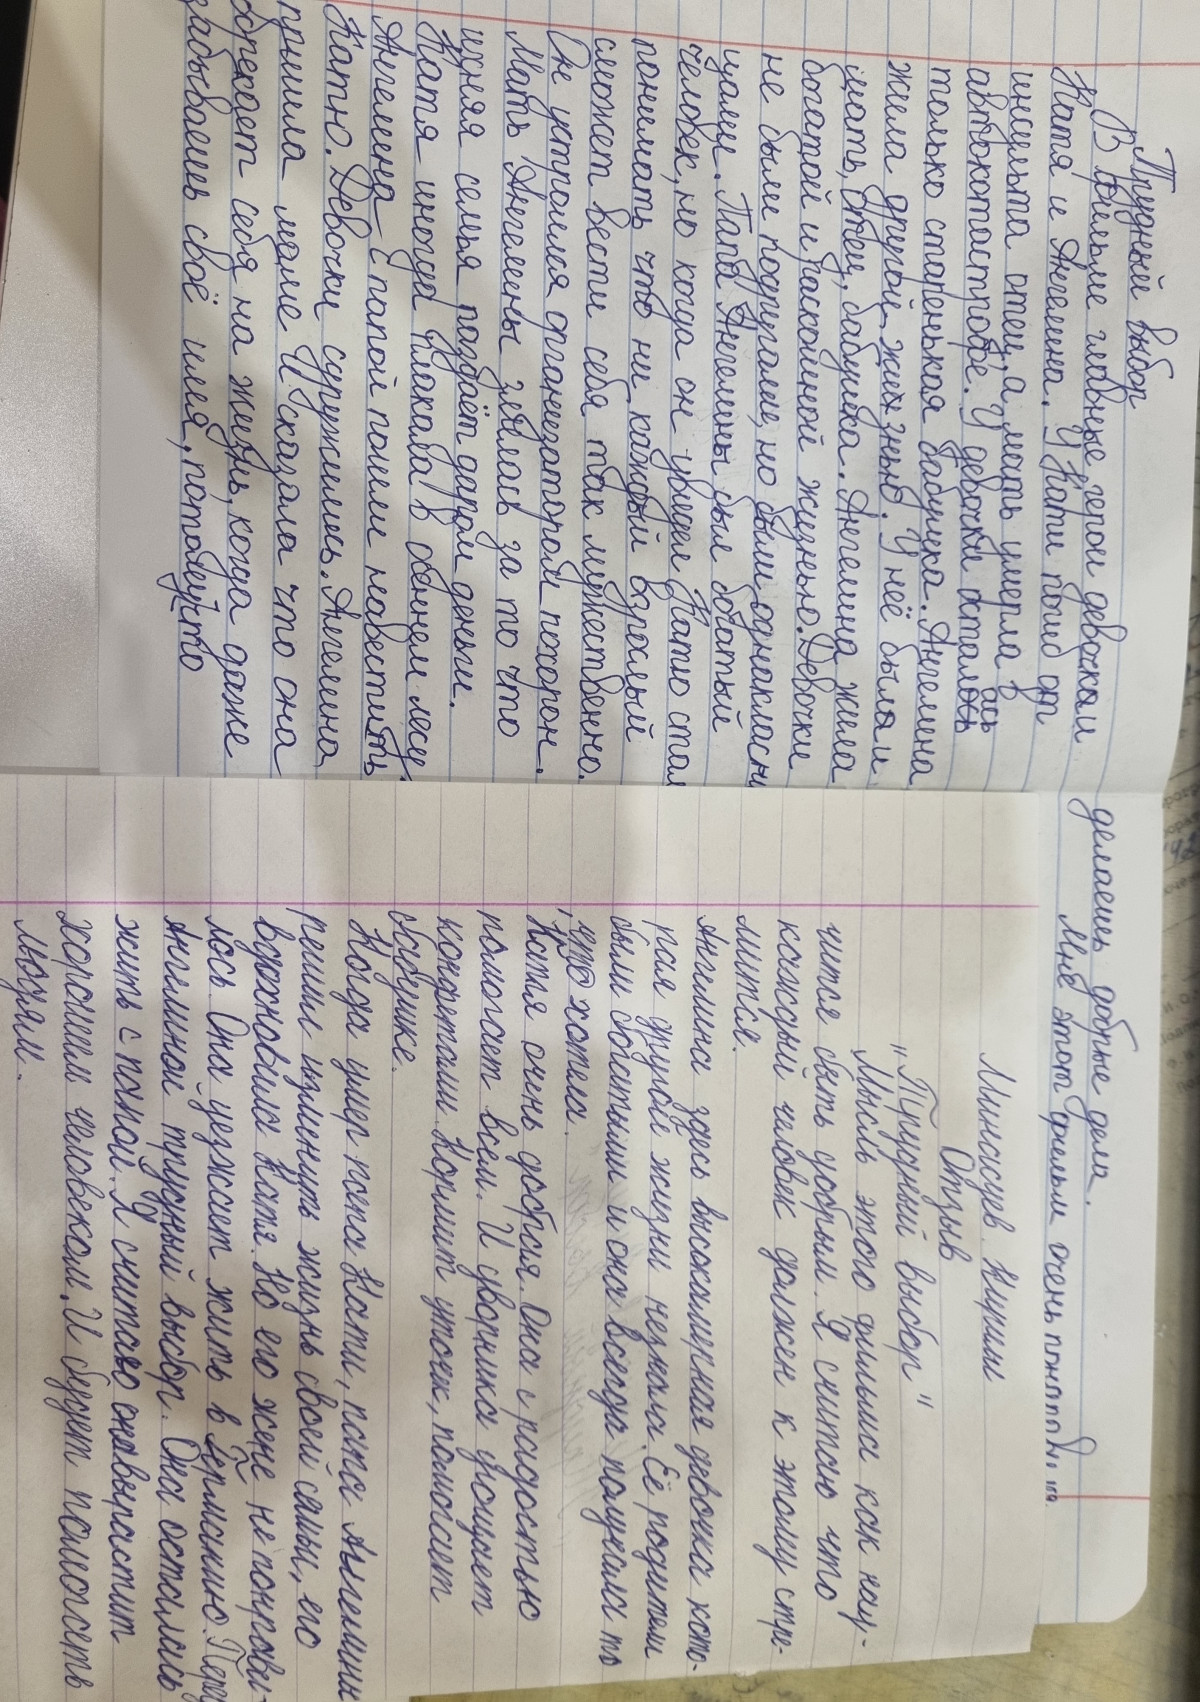 Трудный выбор
В фильме главные герои девочкаи
Катя и Ангелина. У Кати погиб от
инсульта отец, а мать умерла в
автокотастрофе. У девочки осталась
только старенькая бабушка. Ангелина
жила другой жизнью. У неё были
мать, отец, бабушка. Ангелина жила
богатой и раскошной жизнью. Девочки
не были подругами, но были однокласни
цами. Папа Ангелины был богатый
человек, но когда он увидел Катю стал
понимать что ни каждый взрослый
сможет вести себя так мужественно.
Он устроился организатором похорон.
Мать Ангелины злилась за то что
ихняя семья раздаёт даром деньги.
Катя иногда плакала в осеннем лесу.
Ангелина с папой пошли навестить
Катю. Девочки сдружились. Ангелина
пришла маме И сказала что она
обрекает себя на жизнь, когда даже
забываешь своё имя, потомучто
делаешь добрые дела.
Мне этот фильм очень понравился.
Отзыв
"Трудний выбор"
Мысль этого фильма как нау-
чится быть добрым. Я считаю что
каждый человек должен к этому стре-
мится.
Ангелина здесь высокомерная девочка кото-
рая другой жизни незнала. Её родители
были богатыми и она всегда получала то
, что хотела.
Катя очень добрая. Она с радостью
помогает всем. И дворника угощает
конфетами. Кормит уточек, помогает
бабушке.
Когда умер папа Кати, папа Ангелины
решил изменить жизнь своей семьи, его
вдохновила Катя. Но его жене не понрави-
лось. Она уезжает жить в Германию. Перед
Ангелиной трудный выбор. Она осталась
жить с папой. Я считаю она вырастит
хорошем человеком. И будет помогать
людям.